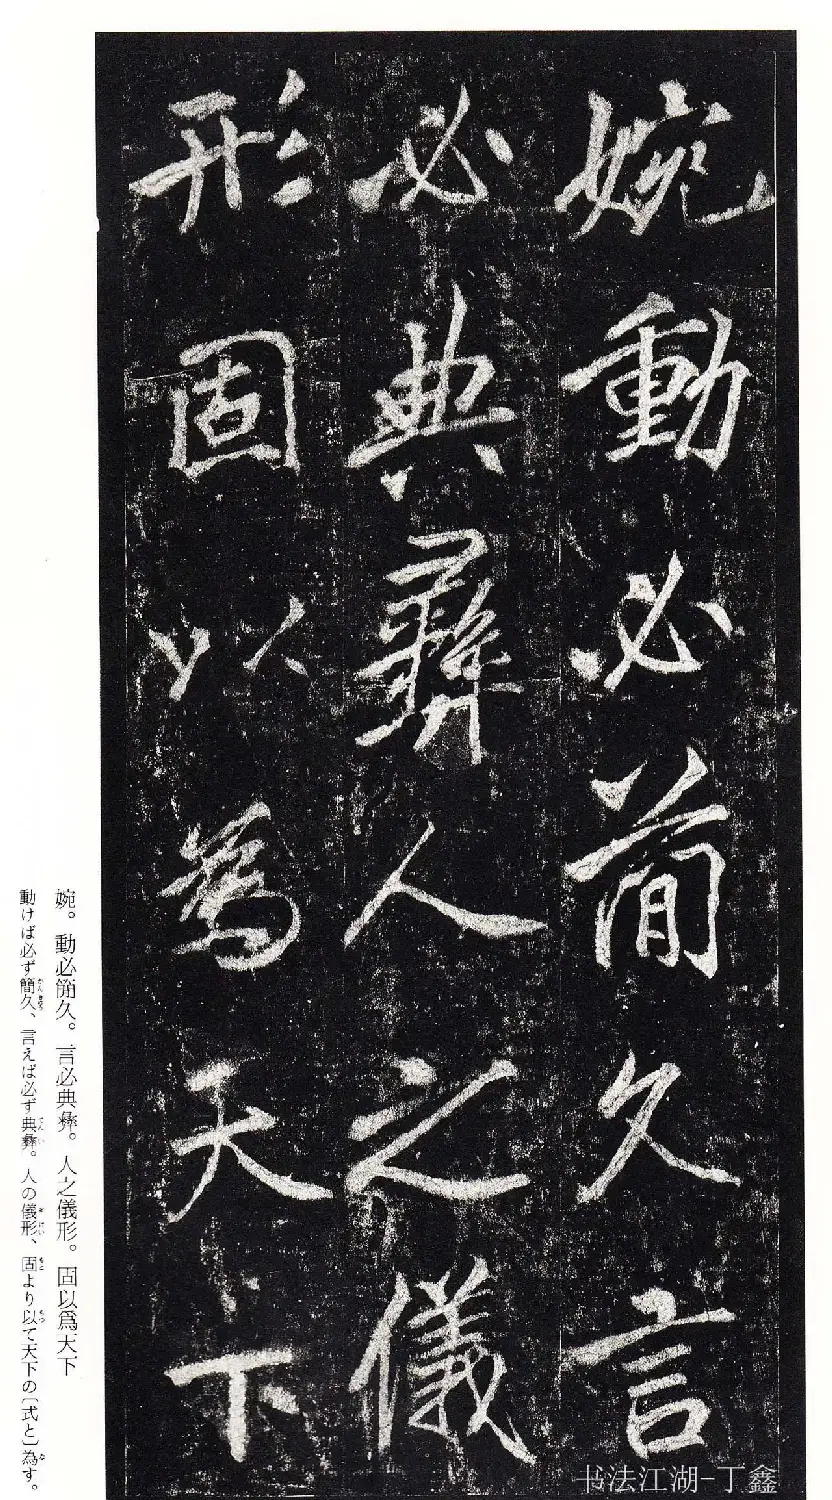 婉動必簡久言
必典彝人之儀
形固以為天下
婉。動必簡久。言必典彝。人之儀形。固以爲天下
動けば必ず簡久、言えば必ず典彝。人の儀形、固より以て天下の〔式と〕為す。
书法江湖-丁鑫